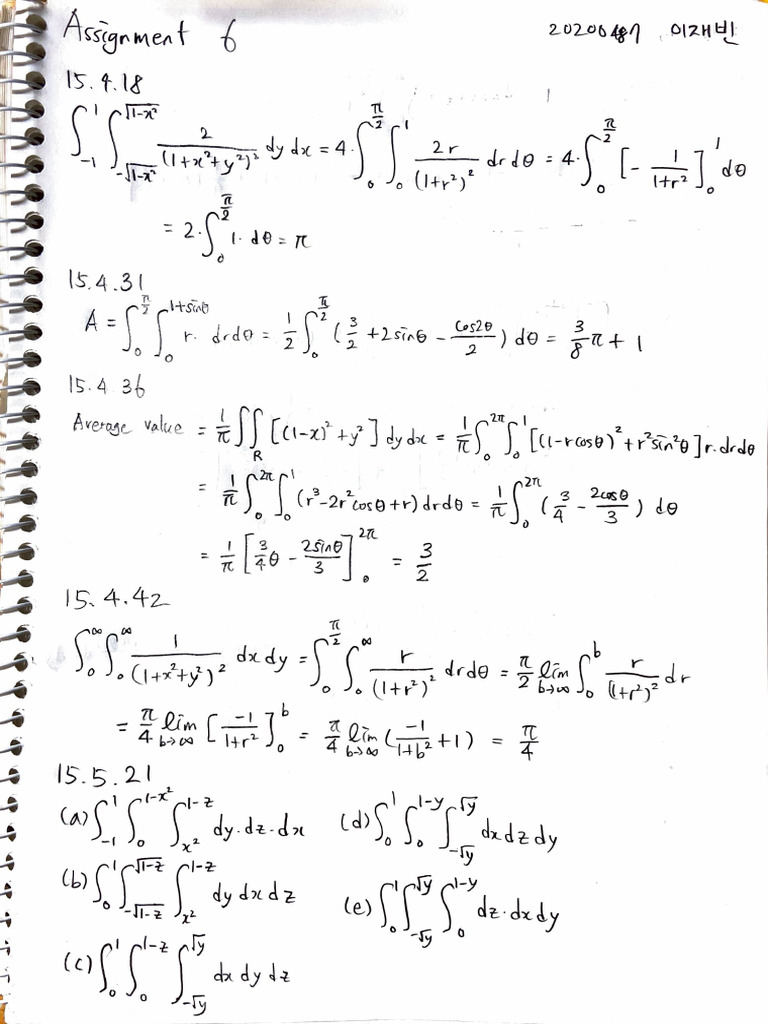 Assignment 6 20200487 이재빈
15.4.18
∫_{-1}^{1} ∫_{-√(1-x²)}^{√(1-x²)} 2/(1+x²+y²)² dy dx = 4·∫_0^{π/2} ∫_0^1 2r/(1+r²)² dr dθ = 4·∫_0^{π/2} [-1/(1+r²)]_0^1 dθ
= 2·∫_0^{π/2} 1· dθ = π
15.4.31
A = ∫_0^{π/2} ∫_0^{1+sinθ} r· drdθ = 1/2 ∫_0^{π/2} (3/2 + 2sinθ - cos2θ/2) dθ = 3/8 π + 1
15.4.36
Average value = 1/π ∬_R [(1-x)² + y²] dy dx = 1/π ∫_0^{2π} ∫_0^1 [(1-rcosθ)² + r²sin²θ] r·drdθ
= 1/π ∫_0^{2π} ∫_0^1 (r³ - 2r²cosθ + r) drdθ = 1/π ∫_0^{2π} (3/4 - 2cosθ/3) dθ
= 1/π [3/4 θ - 2sinθ/3]_0^{2π} = 3/2
15.4.42
∫_0^∞ ∫_0^∞ 1/(1+x²+y²)² dx dy = ∫_0^{π/2} ∫_0^∞ r/(1+r²)² drdθ = π/2 lim_{b→∞} ∫_0^b r/(1+r²)² dr
= π/4 lim_{b→∞} [-1/(1+r²)]_0^b = π/4 lim_{b→∞} (-1/(1+b²) + 1) = π/4
15.5.21
(a) ∫_{-1}^1 ∫_0^{1-x²} ∫_{x²}^{1-z} dy·dz·dx (d) ∫_0^1 ∫_0^{1-y} ∫_{-√y}^{√y} dx dz dy
(b) ∫_0^1 ∫_{-√(1-z)}^{√(1-z)} ∫_{x²}^{1-z} dy dx dz (e) ∫_0^1 ∫_{-√y}^{√y} ∫_0^{1-y} dz·dx dy
(c) ∫_0^1 ∫_0^{1-z} ∫_{-√y}^{√y} dx dy dz